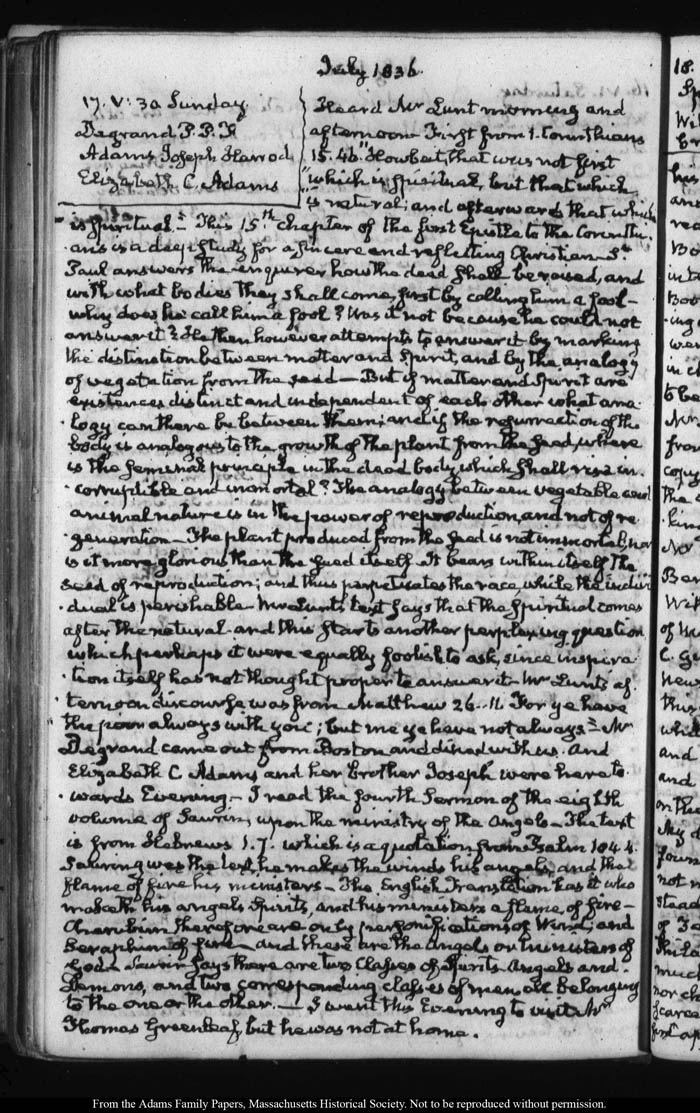 July 1836
17. V: 30 Sunday
Degrand P. P. F
Adams Joseph Harrod
Elizabeth C. Adams
Heard Mr Lunt morning and
afternoon. First from 1. Corinthians
15. 46. "Howbeit, that was not first
"which is spiritual, but that which
"is natural; and afterwards that which
"is spiritual"— This 15th chapter of the first Epistle to the Corinthi-
-ans is a deep study for a sincere and reflecting Christian— St
Paul answers the enquirer how the dead shall be raised, and
with what bodies they shall come, first by calling him a fool—
why does he call him a fool? Was it not because he could not
answer it? He then however attempts to answer it by marking
the distinction between matter and spirit, and by the analogy
of vegetation from the seed— But if matter and spirit are
existences distinct and independent of each other what ana-
-logy can there be between them; and if the resurrection of the
body is analogous to the growth of the plant from the seed, where
is the seminal principle in the dead body which shall rise in-
-corruptible and immortal? The analogy between vegetable and
animal nature is in the power of reproduction, and not of re-
-generation— The plant produced from the seed is not immortal, nor
is it more glorious than the seed itself. It bears within itself the
seed of reproduction; and thus perpetuates the race, while the indivi-
-dual is perishable— Mr Lunt's text says that the spiritual comes
after the natural— and this starts another perplexing question
which perhaps it were equally foolish to ask, since inspira-
-tion itself has not thought proper to answer it— Mr Lunt's af-
-ternoon discourse was from Matthew 26. 11. For ye have
the poor always with you; but me ye have not always"— Mr
Degrand came out from Boston and dined with us. And
Elizabeth C. Adams and her brother Joseph were here to-
-wards Evening— I read the fourth Sermon of the eighth
volume of Saurin, upon the ministry of the Angels— The text
is from Hebrews 1. 7. which is a quotation from Psalm 104. 4.
the text, he makes the winds his angels, and the
flame of fire his ministers— The English Translation has it who
maketh his angels Spirits, and his ministers a flame of fire—
Cherubim therefore are only personifications of Wind, and
Seraphim of fire— and these are the angels or ministers of
God— Saurin says there are two Classes of Spirits Angels and
Demons, and two corresponding classes of men, all belonging
to the one or the other.— I went this Evening to visit Mr
Thomas Greenleaf, but he was not at home.
From the Adams Family Papers, Massachusetts Historical Society. Not to be reproduced without permission.